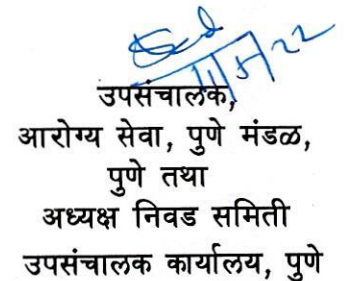 11/5/22
उपसंचालक,
आरोग्य सेवा, पुणे मंडळ,
पुणे तथा
अध्यक्ष निवड समिती
उपसंचालक कार्यालय, पुणे